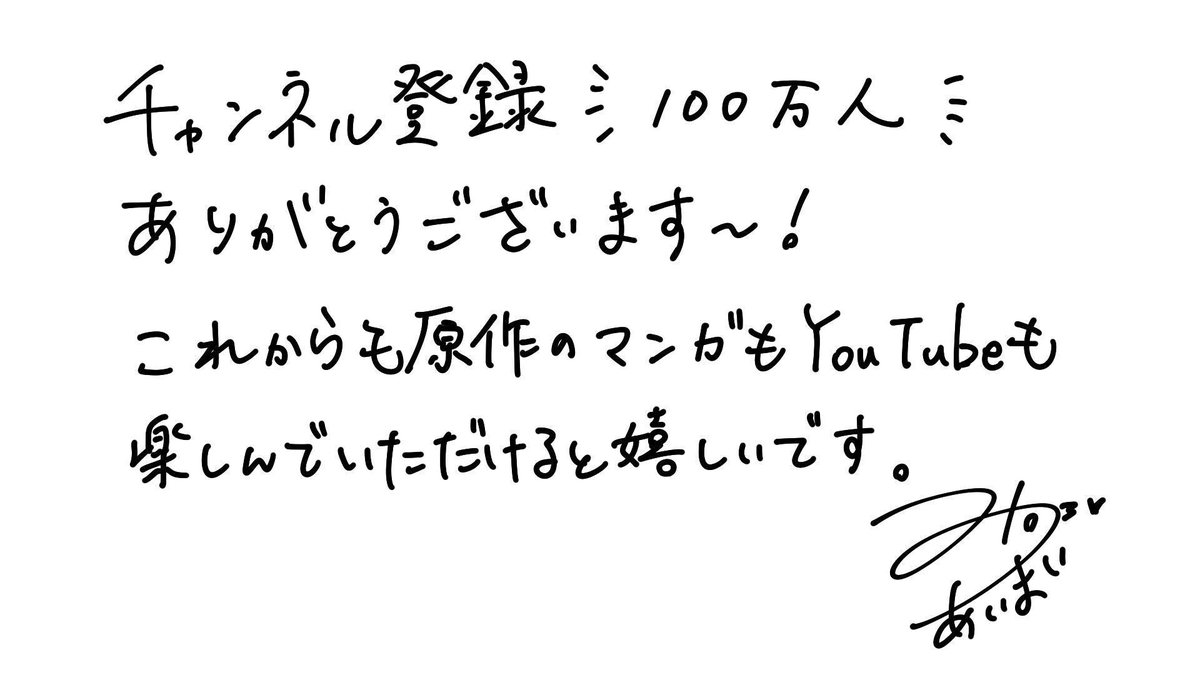 チャンネル登録 100万人
ありがとうございます〜！
これからも原作のマンガもYouTubeも
楽しんでいただけると嬉しいです。
あいまい